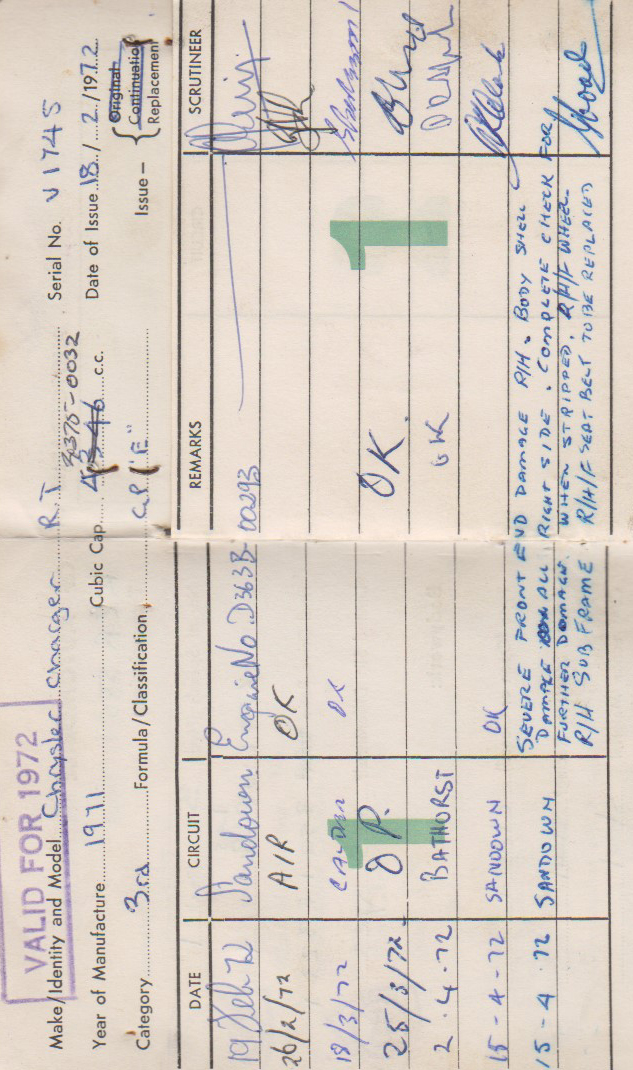 VALID FOR 1972
Make/Identity and Model Chrysler Charger R.T Serial No. V1745
Year of Manufacture 1971 Cubic Cap. 4346 c.c. Date of Issue 18/2/1972
4375-0032
Category 3rd Formula/Classification GP "E" Issue – { Original
Continuation
Replacement
DATE CIRCUIT REMARKS SCRUTINEER
19 Feb 72 Sandown Engine No. D363B-00293
26/2/72 AIR OK
18/3/72 CALDER OK
25/3/72. O.P. OK.
2.4.72 BATHORST OK
15-4-72 SANDOWN OK
15-4-72 SANDOWN SEVERE FRONT END DAMAGE R/H. BODY SHELL
DAMAGE ALL RIGHT SIDE. COMPLETE CHECK FOR
FURTHER DAMAGE WHEN STRIPPED. R/H/F WHEEL.
R/H SUB FRAME R/H/F SEAT BELT TO BE REPLACED
1
1